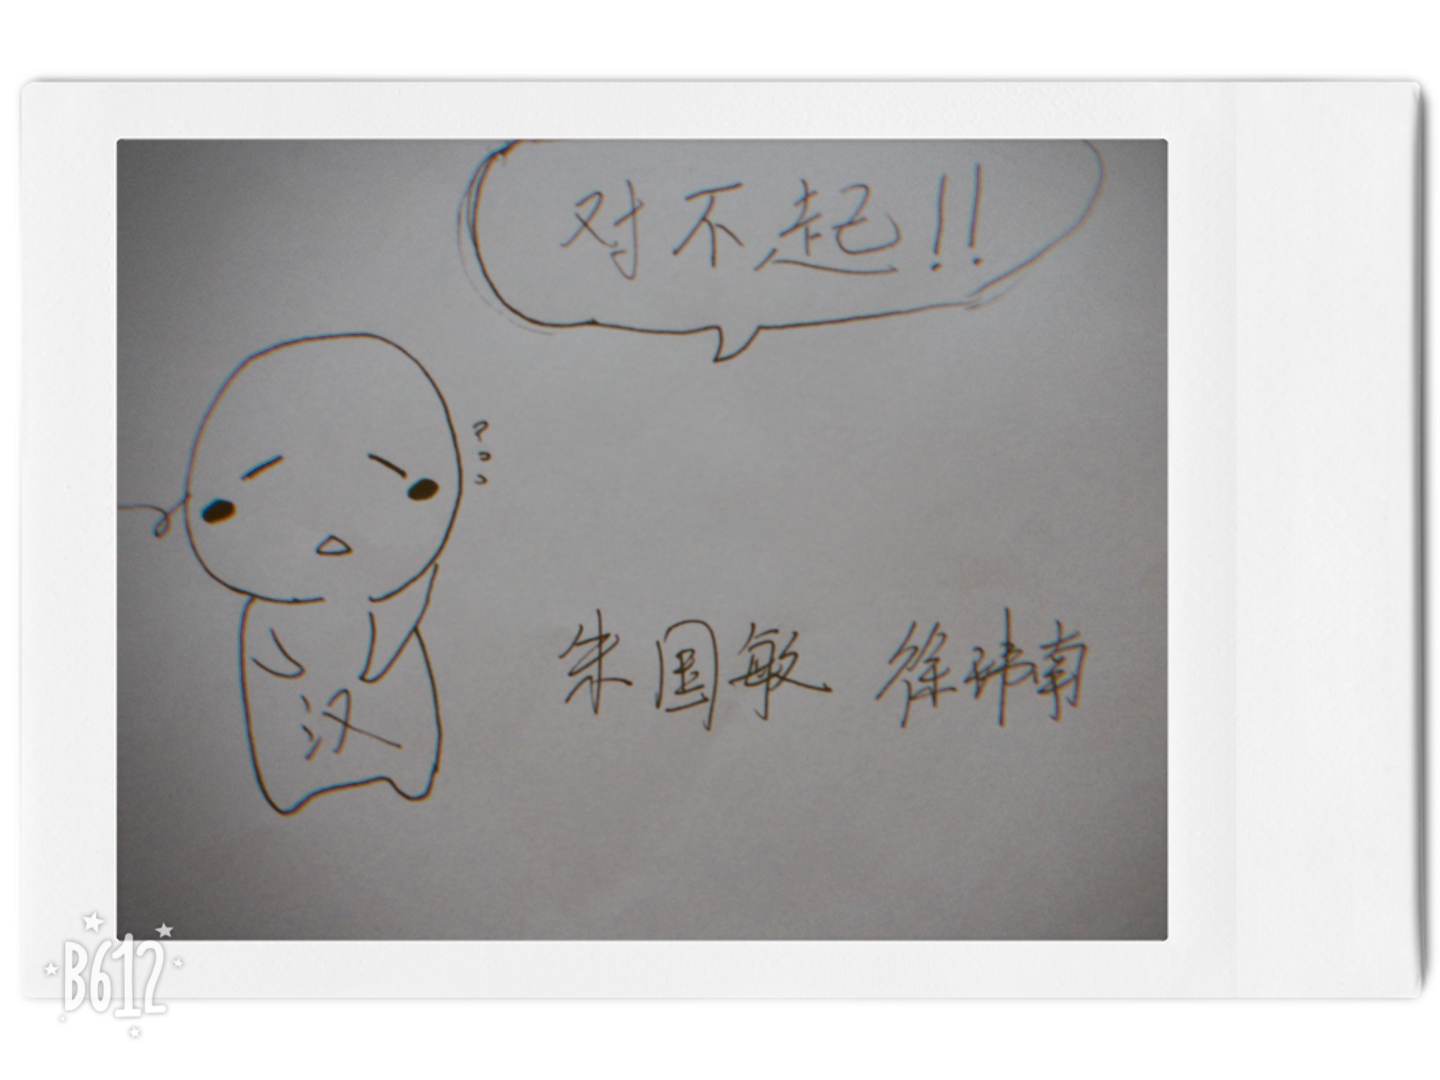 对不起!!
朱国敏 徐玮南
汉
B612